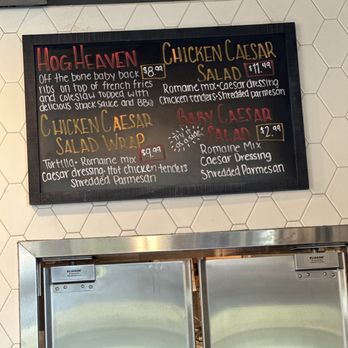 HOG HEAVEN
Off the bone baby back
ribs on top of french fries
and coleslaw topped with
delicious shack sauce and BBQ
$8.99
CHICKEN CAESAR
SALAD $11.49
Romaine mix-Caesar dressing
Chicken tenders-Shredded parmesan
CHICKEN CAESAR
SALAD WRAP
$9.99
Tortilla-Romaine mix
Caesar dressing-Hot chicken tenders
Shredded Parmesan
BABY CAESAR
SALAD $2.99
Romaine Mix
Caesar Dressing
Shredded Parmesan